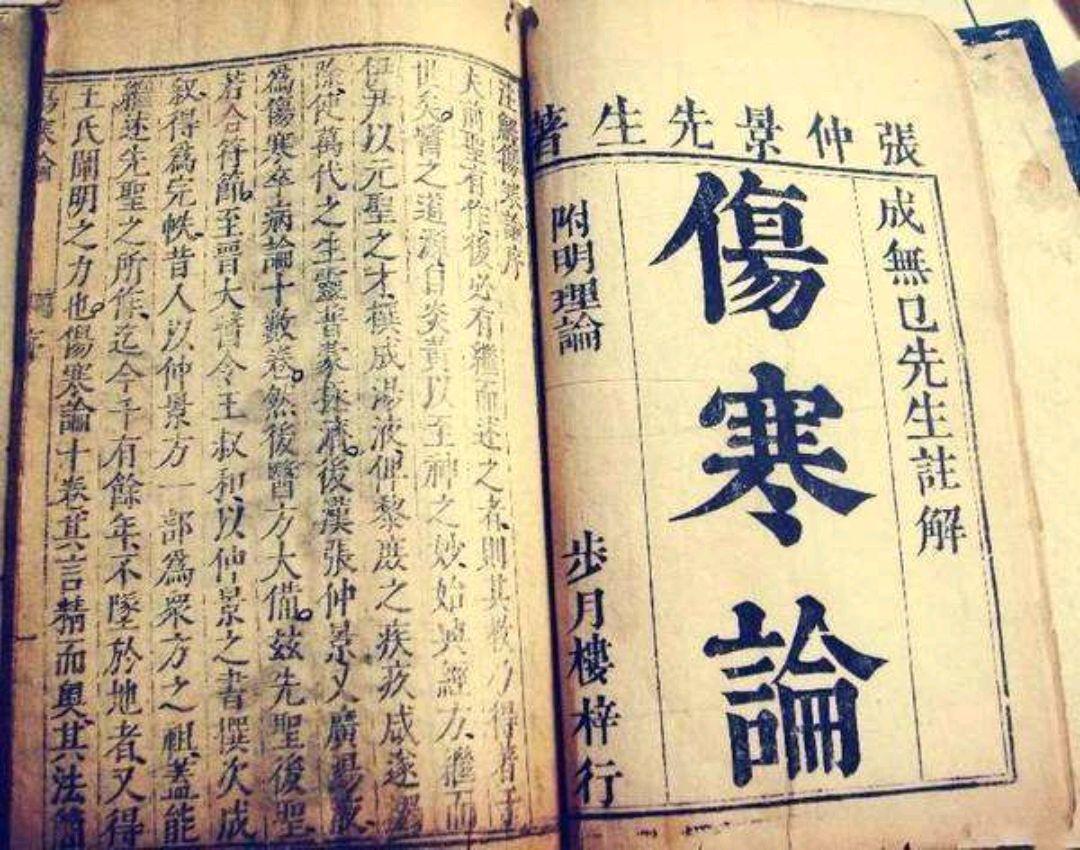 張仲景先生著
成無已先生註解
傷寒論
附明理論 步月樓梓行
註解傷寒論序
夫前聖有作後必有繼而述之者、則其教乃得著于
世矣。醫之道源自炎黃以至神之妙始興經方、繼而
伊尹以元聖之才、撰成湯液、俾黎庶之疾疢咸遂蠲
除、使萬代之生靈普蒙拯濟。後漢張仲景又廣湯液
為傷寒卒病論十數卷。然後醫方大備。茲先聖後聖
若合符節。至晉大醫令王叔和、以仲景之書撰次成
叙、得為完帙、昔人以仲景方一部為眾方之祖、蓋能
繼述先聖之所作、迄今千有餘年、不墜於地者、又得
王氏闡明之力也。傷寒論十卷、其言精而奧、其法簡
傷寒論